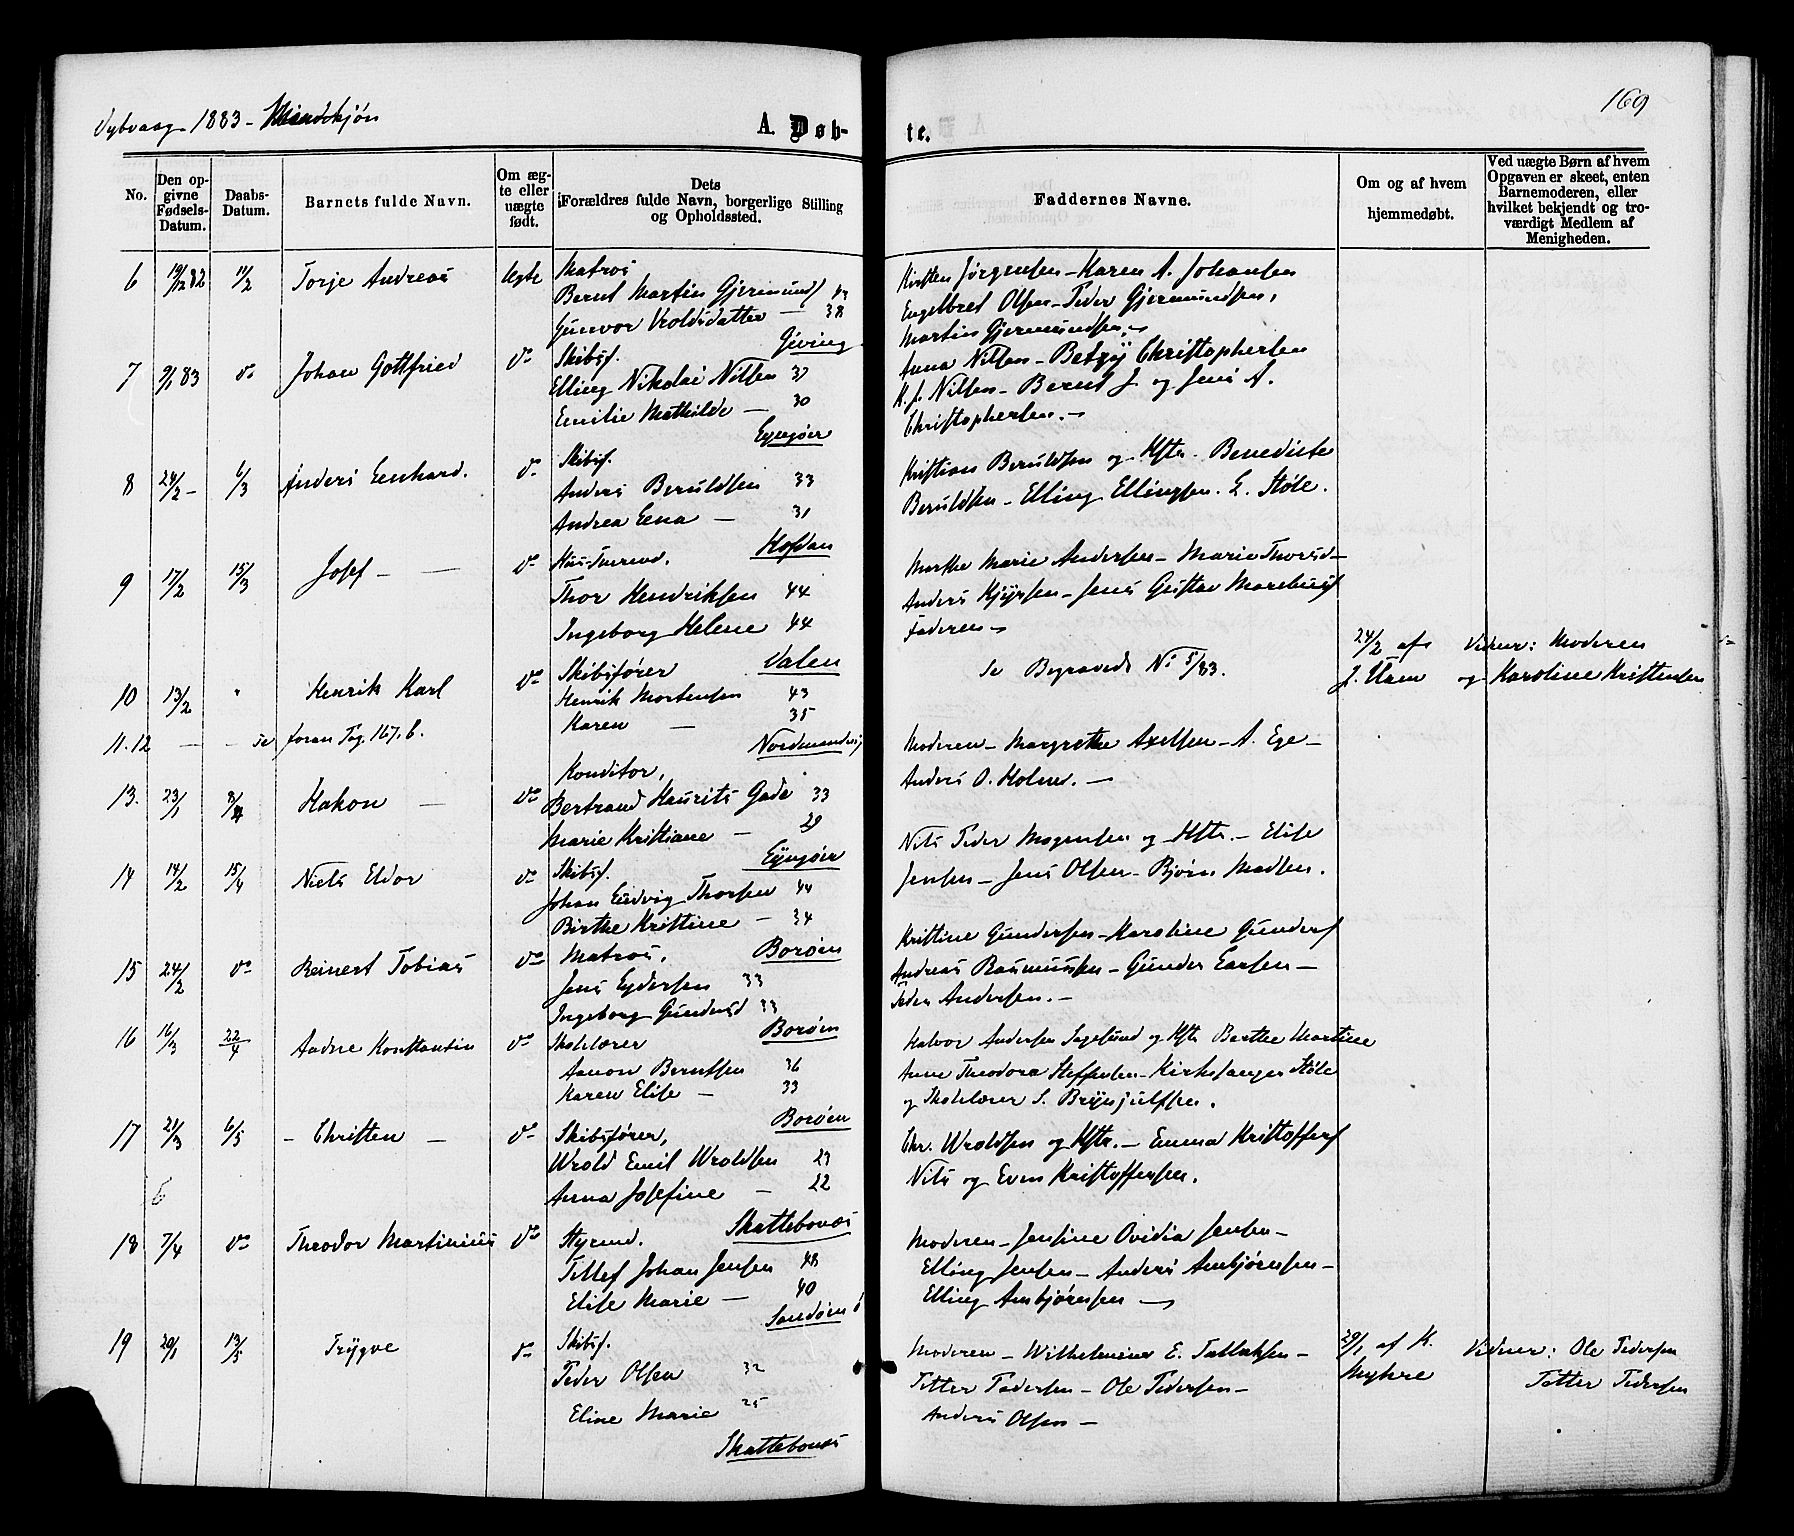 Dybvaag 1883 - Mandkjøn
169
A. Døb-
te.
No.
Den op-
givne
Fødsels-
Datum.
Daabs-
Datum.
Barnets fulde Navn.
Om æg-
te eller
uægte
født.
Dets
Forældres fulde Navn, borgerlige Stilling
og Opholdssted.
Faddernes Navne.
Om og af hvem
hjemmedøbt.
Ved uægte Børn af hvem
Opgaven er skeet, enten
Barnemoderen, eller
hvilket bekjendt og tro-
værdigt Medlem af
Menigheden.
6 19/12 82 11/2 Torje Andreas Ægte Matros
Bernt Martin Gjermunds 43
Gunvor Vroldsdatter — 38
Gjeving
Kirsten Jørgensen - Karen A. Johansen
Engelbret Olsen - Peder Gjermundsen,
Martin Gjermundsen. -
7 9/1 83 do Johan Gottfried do Skibsf.
Elling Nikolai Nilsen 37
Emilie Mathilde — 30
Lyngøer
Anna Nilsen - Betzy Christophersen
N. J. Nilsen - Bernt J. og Jens A.
Christophersen. -
8 24/2 - 6/3 Anders Lenhard. do Skibsf.
Anders Beruldsen 33
Andrea Lena — 31
Hofdan
Kristian Beruldsen og Hstr. Benedicte
Beruldsen - Elling Ellingsen. L. Støle.
9 17/2 15/3 Josef — do
Thor Hendriksen 44
Ingeborg Helene 44
Valen
Marthe Marie Andersen - Marie Thorsd -
Anders Kjyrsen - Jens Gustav
Faderen -
10 13/2 " Henrik Karl do Skibsfører
Henrik Mortensen 43
Karen — 35
Nordmandvig
Se Begravede No 5/83.
24/2 af
J. Uren
Vidner: Moderen
og Karoline Kristensen
11.12 — — se foran Pag. 167. b.
13. 23/1 8/4 Hakon — do Konditor,
Bertrand Laurits Gade 33
Marie Kristiane — 29
Lyngøer
Moderen - Margrethe Axelsen - A. Ege -
Anders O. Holm. -
14 14/2 15/4 Niels Eldor do Skibsf.
Johan Ludvig Thorsen 44
Birthe Kristine — 34
Borøen
Nils Peder Mogensen og Hstr. - Elise
Jensen - Jens Olsen - Bjørn Madsen.
15 24/2 do Reinert Tobias do Matros,
Jens Lydersen 33
Ingeborg Gundersd 33
Borøen
Kristine Gundersen - Karoline Gunders
Andreas Rasmussen - Gunder Larsen -
Peder Andersen. -
16 16/3 22/4 Aadne Konstantin do Skolelærer
Aanon Berntsen 36
Karen Elise — 33
Borøen
Halvor Andersen Sagesund og Hstr Berthe Martine
Anne Theodora Steffensen - Kirkesanger Støle
og Skolelærer S. Brynjulfsen.
17 21/3 6/5 - Christen — do Skibsfører,
Wrold Emil Wroldsen 29
Anna Josefine — 22
Skattebonæs
Chr. Wroldsen og Hstr. - Emma Kristoffers
Nils og Even Kristoffersen.
18 7/4 do Theodor Martinius do Styrmd.
Tellef Johan Jensen 48
Elise Marie — 40
Sandøen
Moderen - Jensine Ovidia Jensen -
Elling Jensen - Anders Ambjørnsen -
Elling Ambjørnsen -
19 29/1 13/5 Trygve do Skibsf.
Peder Olsen 32
Eline Marie 25
Skattebonæs
Moderen - Wilhelmine E. Tallaksen -
Petter Pedersen - Ole Pedersen -
Anders Olsen -
29/1 af K.
Myhre
Vidner: Ole Pedersen
Petter Pedersen